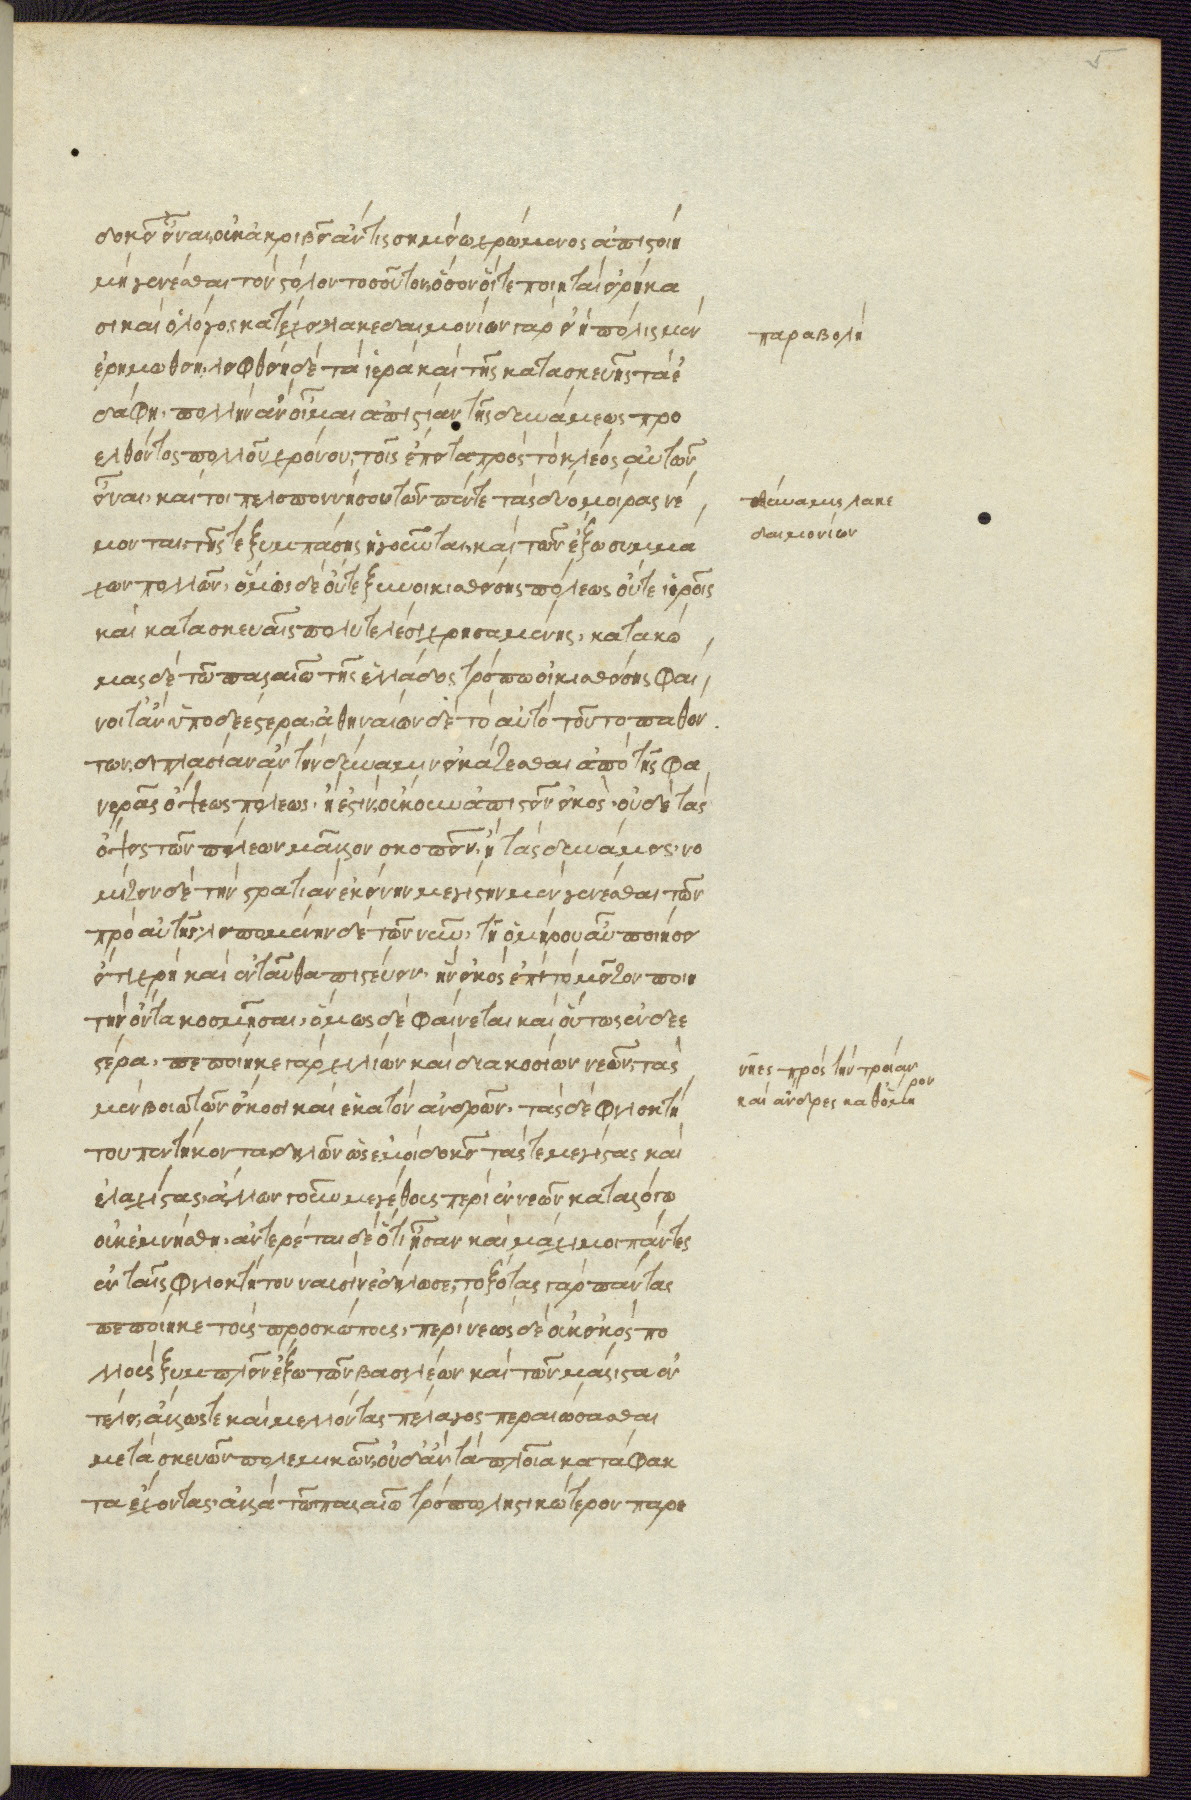 δοκεῖ εἶναι, οὐκ ἀκριβεῖ ἄν τις σημείῳ χρώμενος ἀπιστοίη
μὴ γενέσθαι τὸν στόλον τοσοῦτον, ὅσον οἵ τε ποιηταὶ εἰρήκα
σι καὶ ὁ λόγος κατέχει. λακεδαιμονίων γὰρ εἰ ἡ πόλις μὲν
ἐρημωθείη, λειφθείη δὲ τά ἱερὰ καὶ τῆς κατασκευῆς τὰ ἐ
δάφη, πολλὴν ἂν οἶμαι ἀπιστίαν τῆς δυνάμεως προ
ελθόντος πολλοῦ χρόνου, τοῖς ἔπειτα πρὸς τὸ κλέος αὐτῶν
εἶναι, καί τοι πελοποννήσου τῶν πέντε τὰς δύο μοίρας νέ
μονται, τῆς τε ξυμπάσης ἡγοῦνται, καὶ τῶν ἔξω συμμά
χων πολλῶν, ὅμως δὲ οὔτε ξυνοικισθείσης πόλεως οὔτε ἱεροῖς
καὶ κατασκευαῖς πολυτελέσι χρησαμένης, κατὰ κώ
μας δὲ τῷ παλαιῷ τῆς ἑλλάδος τρόπῳ οἰκισθείσης φαί
νοιτ' ἂν ὑποδεεστέρα, ἀθηναίων δὲ τὸ αὐτὸ τοῦτο παθόν
των, διπλασίαν ἂν τὴν δύναμιν εἰκάζεσθαι ἀπὸ τῆς φα
νερᾶς ὄψεως πόλεως, ἢ ἔστιν, οὔκουν ἀπιστεῖν εἰκὸς, οὐδὲ τὰς
ὄψεις τῶν πόλεων μᾶλλον σκοπεῖν, ἢ τὰς δυνάμεις, νο
μίζειν δὲ τὴν στρατιὰν ἐκείνην μεγίστην μὲν γενέσθαι τῶν
πρὸ αὐτῆς, λειπομένην δὲ τῶν νῦν, τῇ ὁμήρου αὖ ποιήσει
εἴ τι χρὴ κἀνταῦθα πιστεύειν, ἣν εἰκὸς ἐπὶ τὸ μεῖζον ποιη
τὴν ὄντα κοσμῆσαι, ὅμως δὲ φαίνεται καὶ οὕτως ἐνδεε
στέρα. πεποίηκε γὰρ χιλίων καὶ διακοσίων νεῶν, τὰς
μὲν βοιωτῶν εἴκοσι καὶ ἑκατὸν ἀνδρῶν, τὰς δὲ φιλοκτή
του πεντήκοντα, δηλῶν ὡς ἐμοὶ δοκεῖ τάς τε μεγίστας καὶ
ἐλαχίστας, ἄλλων γοῦν μεγέθους πέρι ἐν νεῶν καταλόγῳ
οὐκ ἐμνήσθη, αὐτερέται δὲ ὅτι ἦσαν καὶ μάχιμοι πάντες
ἐν ταῖς φιλοκτήτου ναυσὶν ἐδήλωσε, τοξότας γὰρ πάντας
πεποίηκε τοὺς προσκώπους, περίνεως δὲ οὐκ εἰκὸς πο
λλοὺς ξυμπλεῖν ἔξω τῶν βασιλέων καὶ τῶν μάλιστα ἐν
τέλει, ἄλλως τε καὶ μέλλοντας πέλαγος περαιώσασθαι
μετὰ σκευῶν πολεμικῶν, οὐδ' αὖ τὰ πλοῖα κατάφακ
τα ἔχοντας, ἀλλὰ τῷ παλαιῷ τρόπῳ λῃστικώτερον παρε
παραβολή
δύναμις λακε
δαιμονίων
νῆες πρὸς τὴν τροίαν
καὶ ἄνδρες καθ' ὅμη
ρον